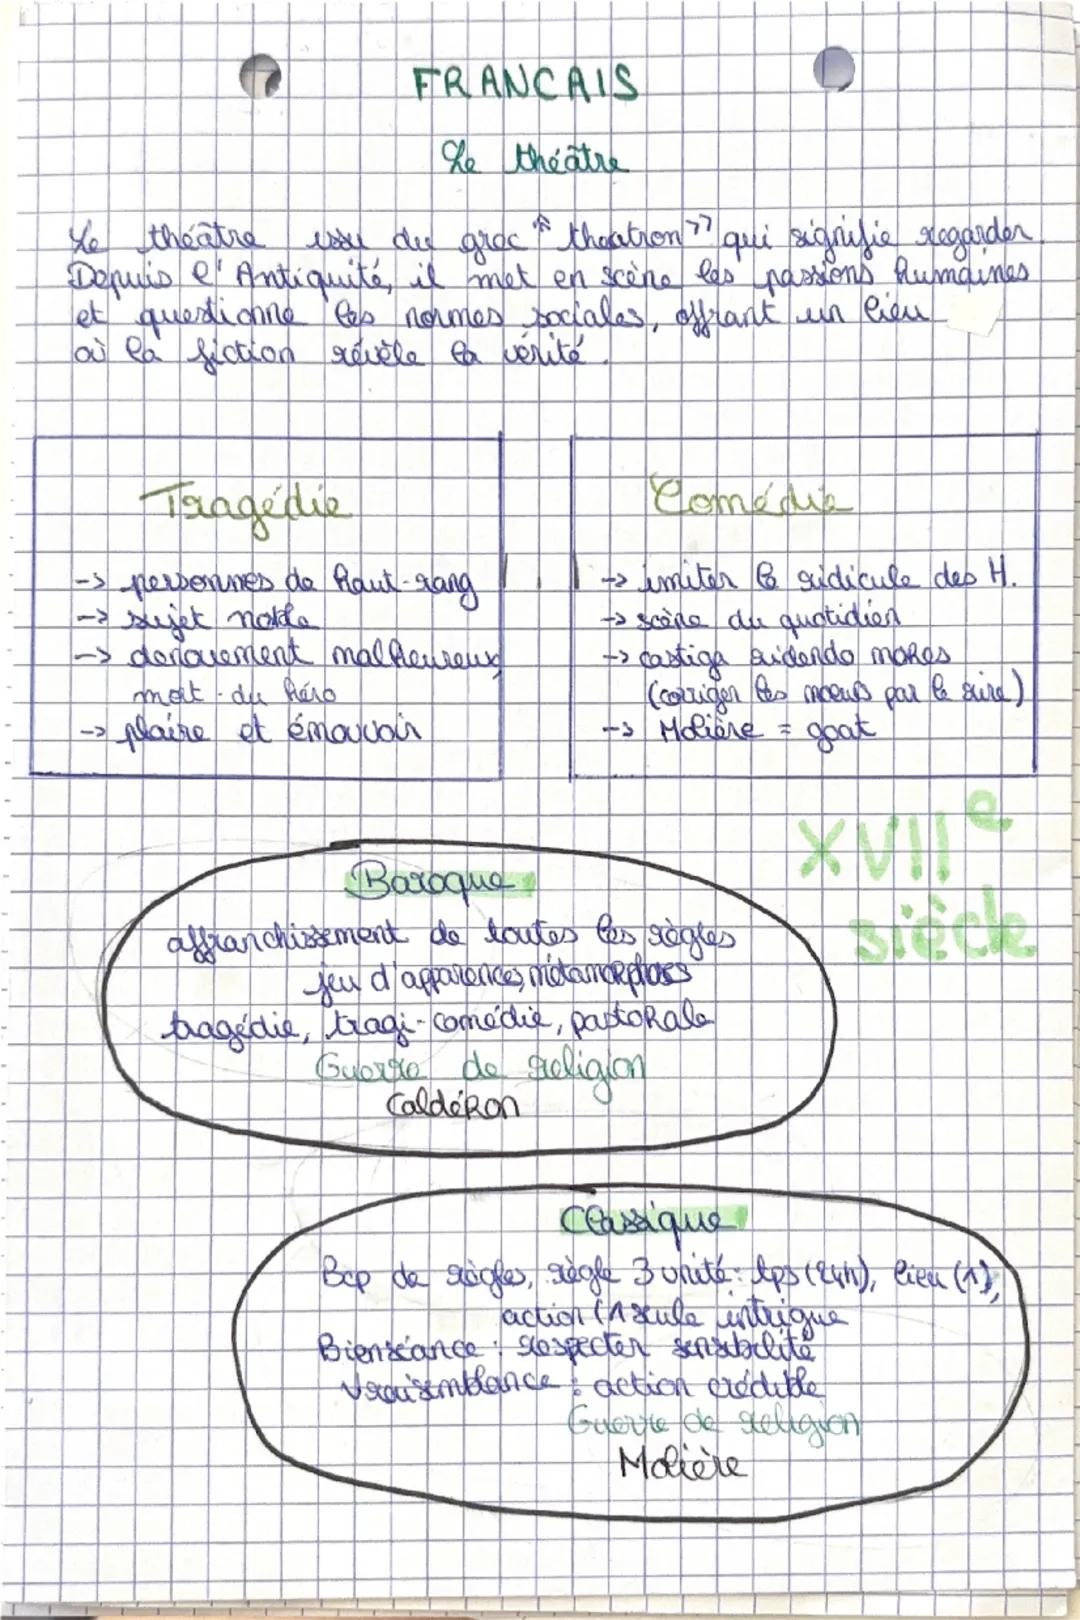 FRANCAIS
Le théâtre
Le théâtre issu du grec "theatron" qui signifie regarder.
Depuis l'Antiquité, il met en scène les passions humaines
et questionne les normes sociales, offrant un lieu
où la fiction révèle la vérité.
Tragédie
-> personnes de haut-rang
-> sujet noble
-> denouement malheureux,
mort du héro
-> plaire et émouvoir
Comédie
-> imiter le ridicule des H.
-> scène du quotidien
-> castiga ridendo mores
(corriger les mœurs par le rire)
-> Molière = goat
XVIIe
siècle
Baroque
affranchissement de toutes les règles
jeu d'apparences, métamorphoses
tragédie, tragi-comédie, pastorale
Guerre de religion
Caldéron
Classique
Bcp de règles, règle 3 unité: tps (24h), lieu (1),
action (1 seule intrigue
Bienséance : respecter sensibilité
Vraisemblance : action crédible
Guerre de religion
Molière